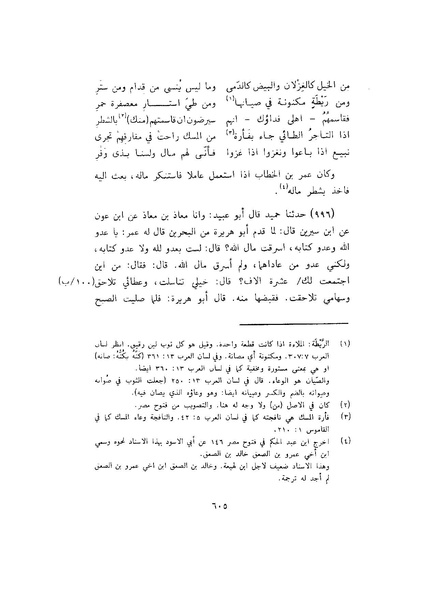 من الخيل كالغِزْلان والبيض كالدمى وما ليس يُنسى من قدام ومن ستر
ومن رَبْطَةٍ مكنونة في صيانها(١) ومن طيّ استــــار معصفرة حمر
فقاسمهُمُ – اهلي فداؤك – انهم سيرضون ان قاسمتهم (منك)(٢) بالشطر
اذا التاجرُ الطائي جاء بفأرة(٣) من المسك راحتْ في مفارقهمْ تجرى
نبيع اذا باعوا ونغزوا اذا غزوا فأنَّى لهم مال ولسنا بذى وَفْرِ
وكان عمر بن الخطاب اذا استعمل عاملا فاستنكر ماله، بعث اليه
فاخذ بشطر ماله(٤).
(٩٩٦) حدثنا حميد قال أبو عبيد: وانا معاذ بن معاذ عن ابن عون
عن ابن سيرين قال: لما قدم أبو هريرة من البحرين قال له عمر: يا عدو
الله وعدو كتابه، اسرقت مال الله؟ قال: لست بعدو لله ولا عدو كتابه،
ولكني عدو من عاداهما، ولم أسرق مال الله. قال: فقال: من اين
اجتمعت لك/ عشرة الاف؟ قال: خيلي تناسلت، وعطائي تلاحق (١٠٠/ب)
وسهامي تلاحقت. فقبضها منه. قال أبو هريرة: فلما صليت الصبح
(١) الرَّيْطَة: الملاءة اذا كانت قطعة واحدة. وقيل هو كل ثوب لين رقيق. انظر لسان
العرب ٣٠٧:٧. ومكنونة أي مصانة. وفي لسان العرب ١٣: ٣٦١ (كَنَّهُ يكُنُّه: صانه)
او هي بمعنى مستورة ومخفية كما في لسان العرب ١٣: ٣٦٠ ايضا.
والصِّيان هو الوعاء. قال في لسان العرب ١٣: ٢٥٠ (جعلت الثوب في صُوانه
وصِوانه بالضم والكسر وصيانه ايضا: وهو وعاؤه الذي يصان فيه).
(٢) كان في الاصل (من) ولا وجه له هنا. والتصويب من فتوح مصر.
(٣) فأرة المسك هي نافجته كما في لسان العرب ٥: ٤٢. والنافجة وعاء المسك كما في
القاموس ١: ٢١٠.
(٤) اخرج ابن عبد الحكم في فتوح مصر ١٤٦ عن أبي الاسود بهذا الاسناد نحوه وسمي
ابن أخي عمرو بن الصعق خالد بن الصعق.
وهذا الاسناد ضعيف لاجل ابن لهيعة. وخالد بن الصعق ابن اخي عمرو بن الصعق
لم أجد له ترجمة.
٦٠٥